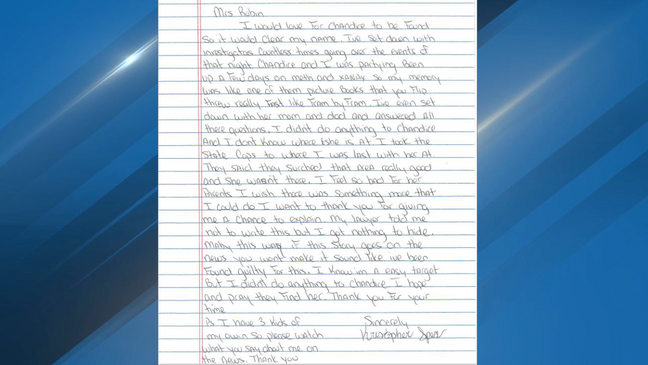 Mrs Rubin
I would love for Chandice to be found
So it would clear my name. I've set down with
investigators countless times going over the events of
that night. Chandice and I was partying Been
up a few days on meth and xanax so my memory
was like one of them picture Books that you flip
threw really fast like fram by fram. I've even set
down with her mom and dad and answered all
there questions. I didnt do anything to Chandice
And I dont know where she is At. I took the
State Cops to where I was last with her At
They said they surched that area really good
and she wasnt there. I feel so bad for her
Parents I wish there was something more that
I could do I want to thank you for giving
me a chance to explain. My lawyer told me
not to write this but I got nothing to hide.
Maby this way if this story goes on the
news you wont make it sound like ive been
found guilty for this. I know im a easy target
But I didnt do anything to chandice I hope
and pray they find her. Thank you for your
time
Ps I have 3 kids of
my own so please watch
what you say about me on
the news. Thank you
Sincerely